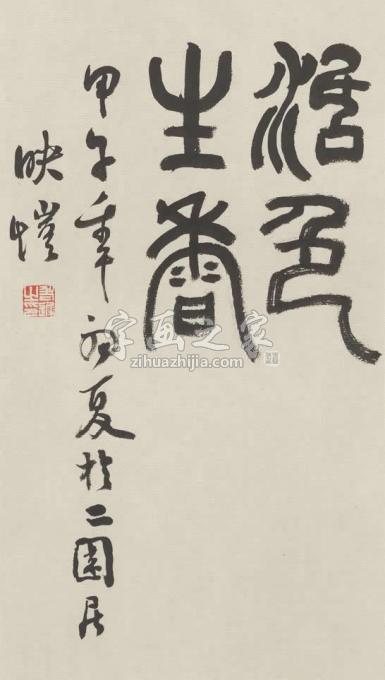 活色
生香
甲午年初夏於二園居
映愷
字画之家
zihuazhijia.com